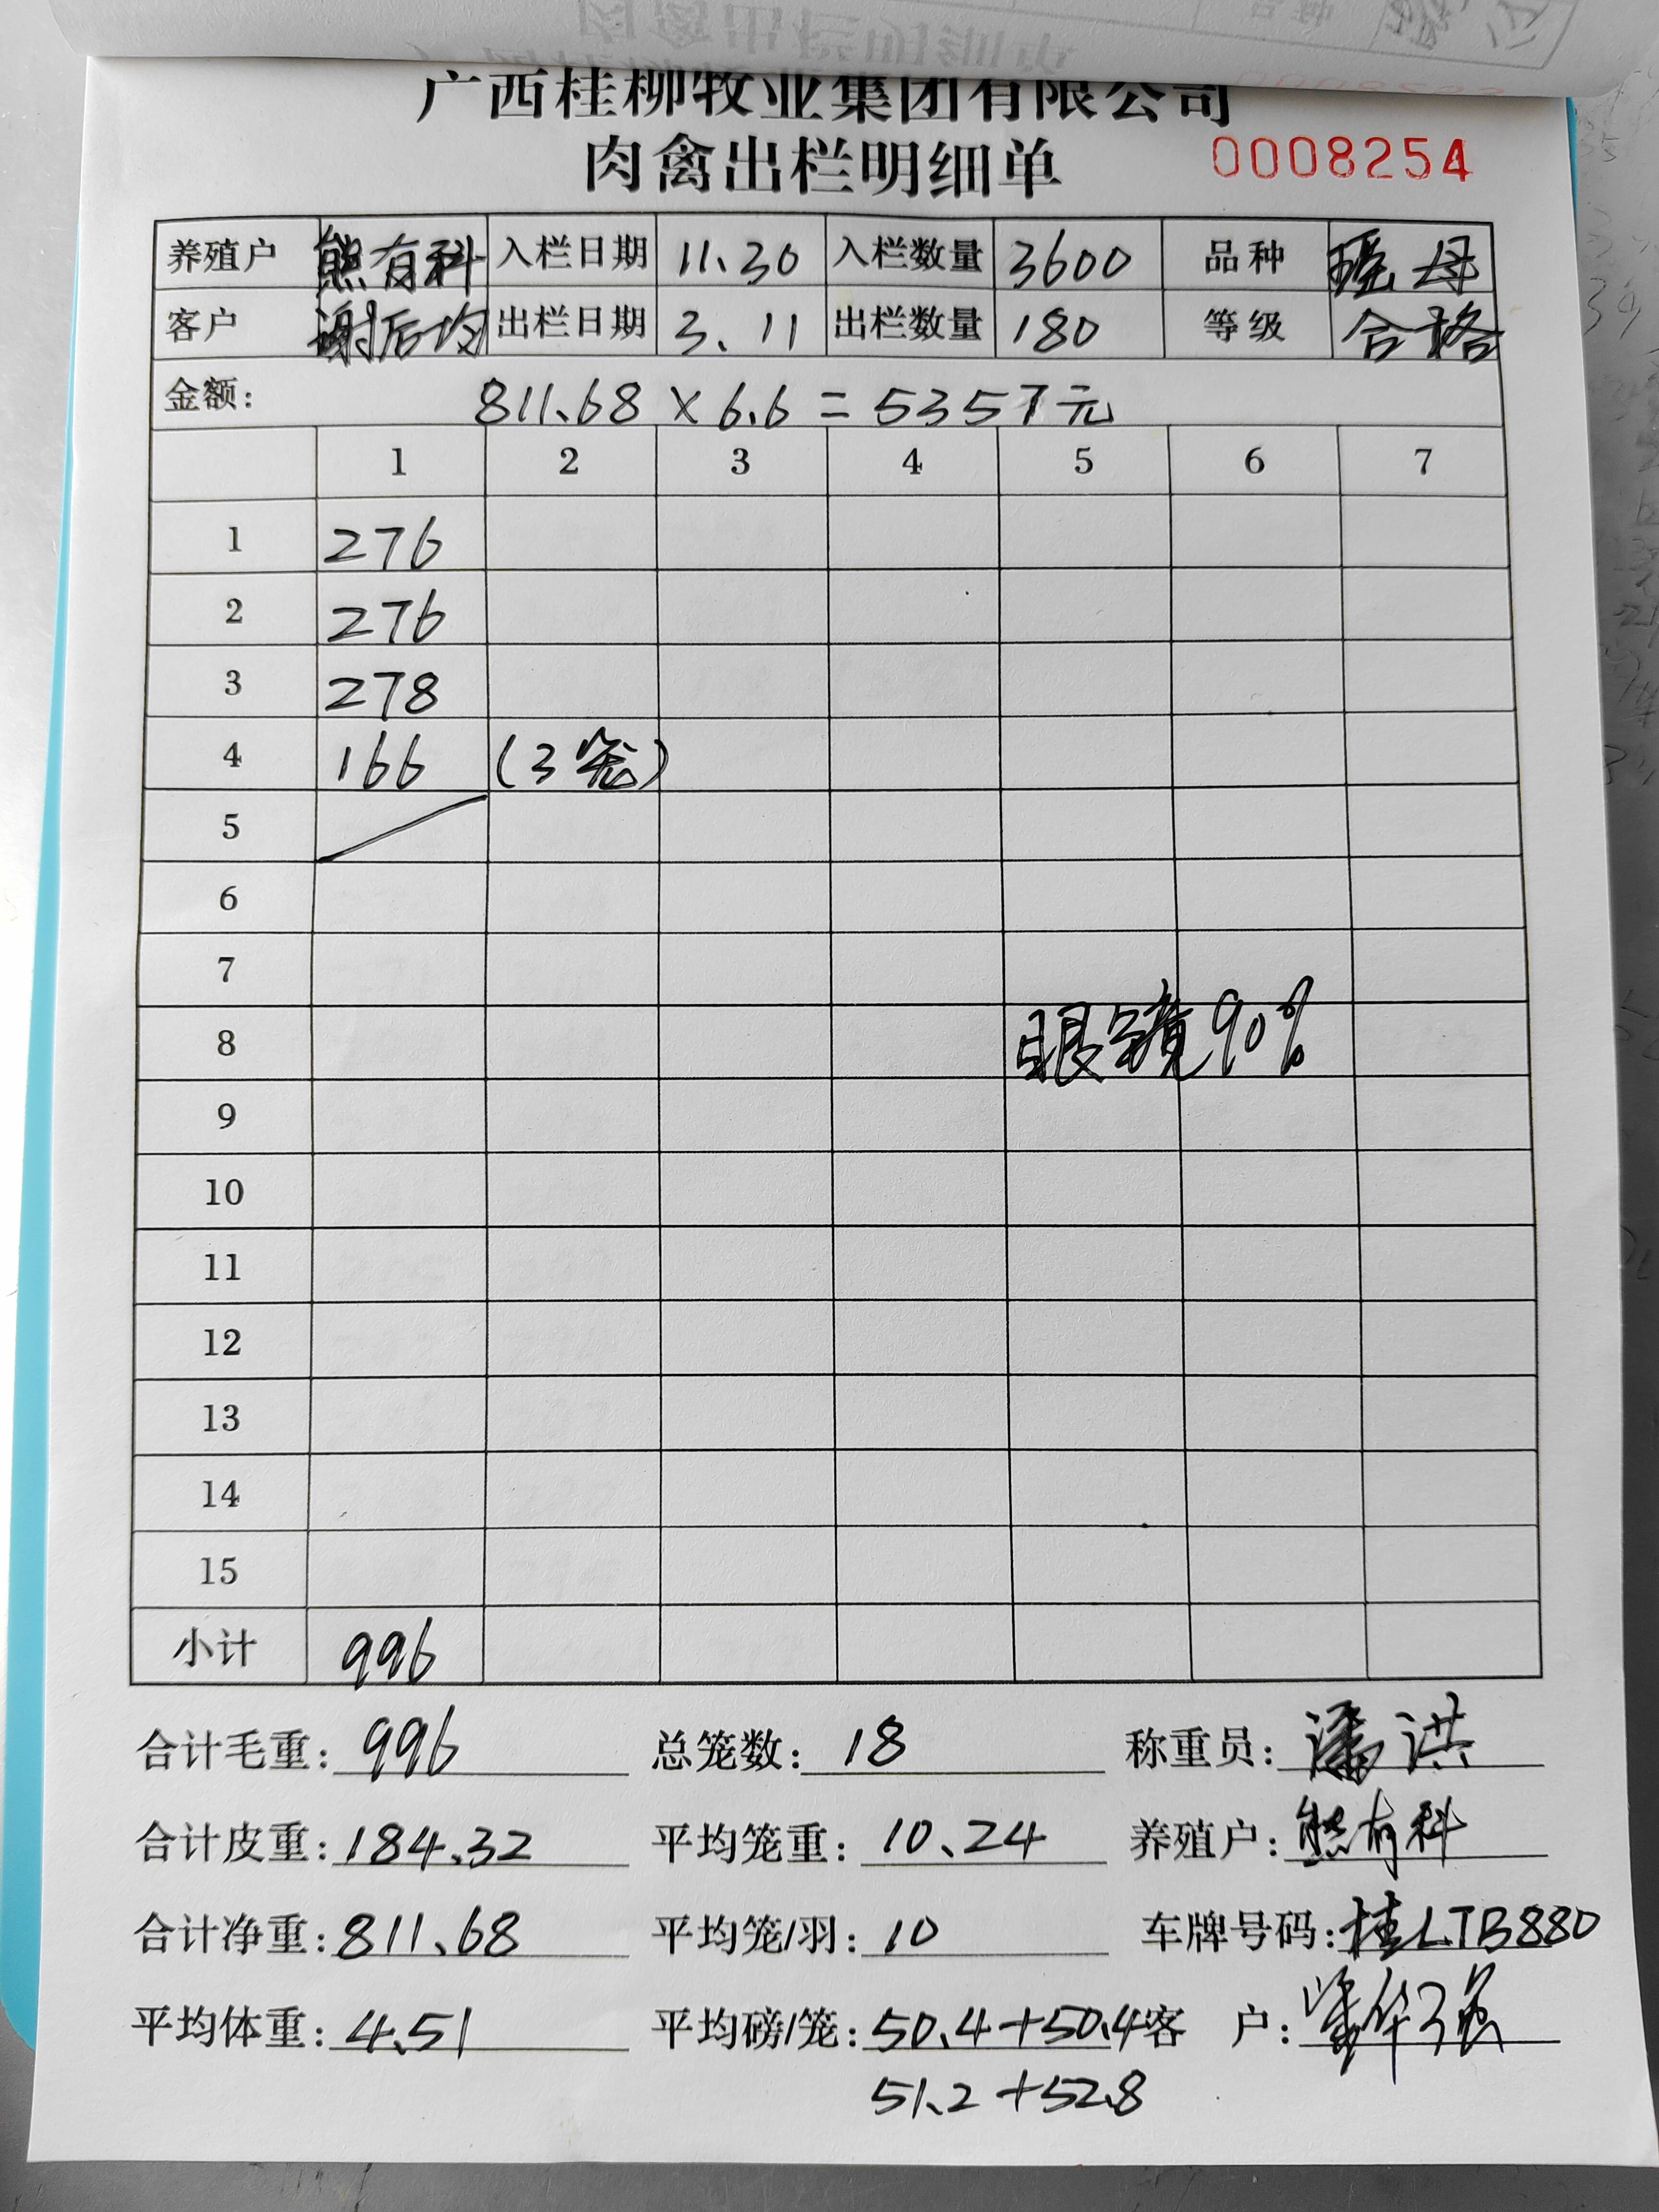 广西桂柳牧业集团有限公司
肉禽出栏明细单 0008254
养殖户 熊有科 入栏日期 11.30 入栏数量 3600 品种 瑶母
客户 谢后均 出栏日期 3.11 出栏数量 180 等级 合格
金额: 811.68 × 6.6 = 5357元
1 2 3 4 5 6 7
1 276
2 276
3 278
4 166 (3笼)
5
6
7
8 眼镜90%
9
10
11
12
13
14
15
小计 996
合计毛重: 996 总笼数: 18 称重员: 潘洪
合计皮重: 184.32 平均笼重: 10.24 养殖户: 熊有科
合计净重: 811.68 平均笼/羽: 10 车牌号码: 桂LTB880
平均体重: 4.51 平均磅/笼: 50.4+50.4 客户:
51.2+52.8